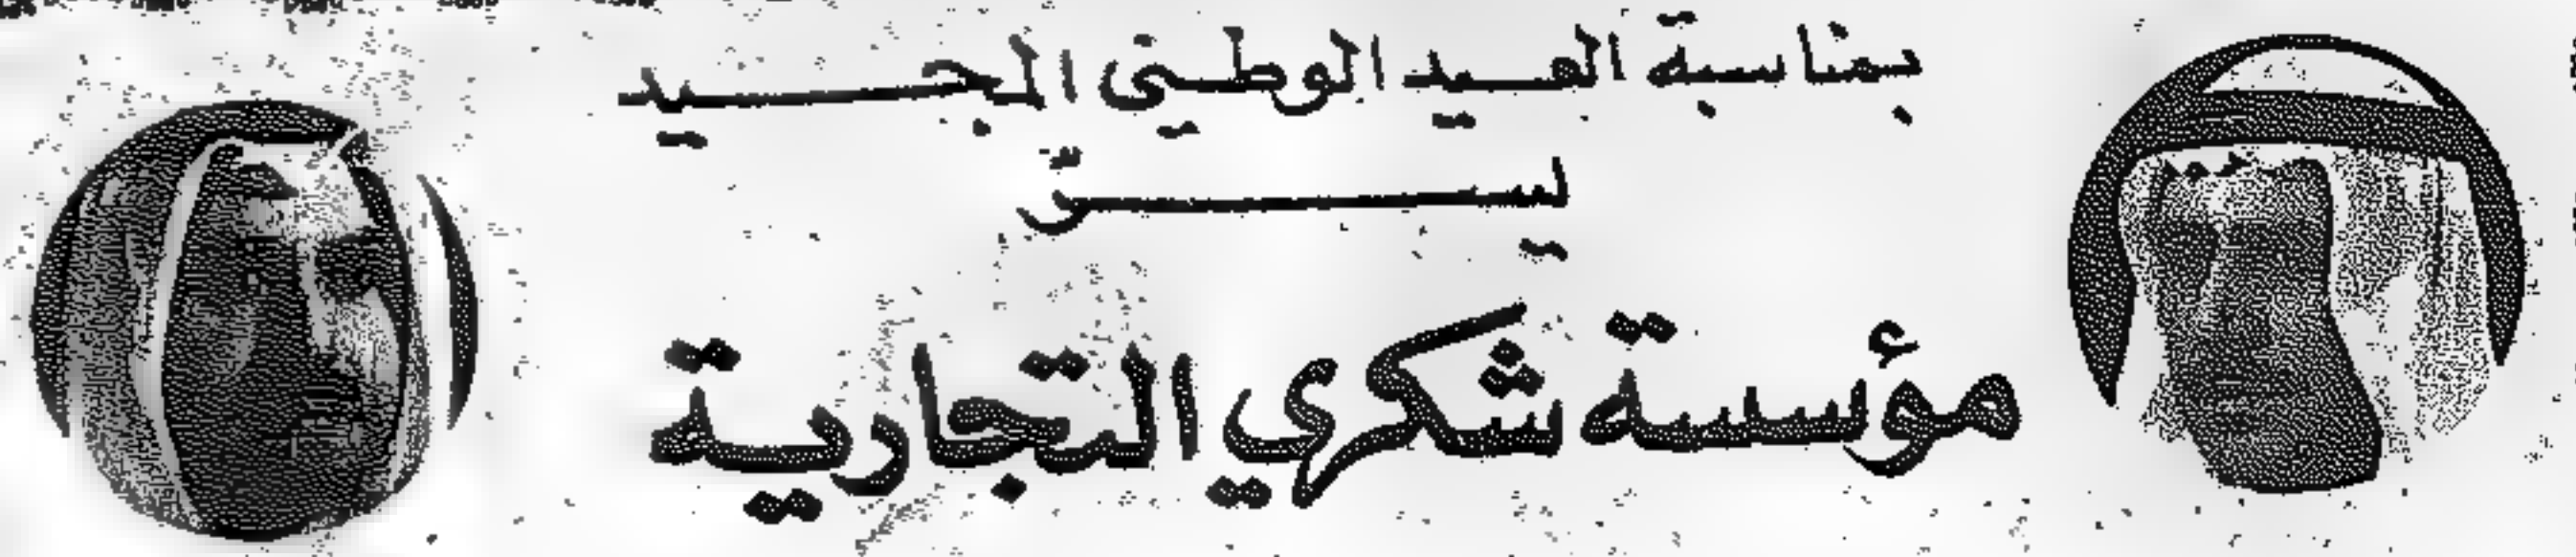 بمناسبة العيد الوطني المجيد
يسرّ
مؤسسة شكري التجارية